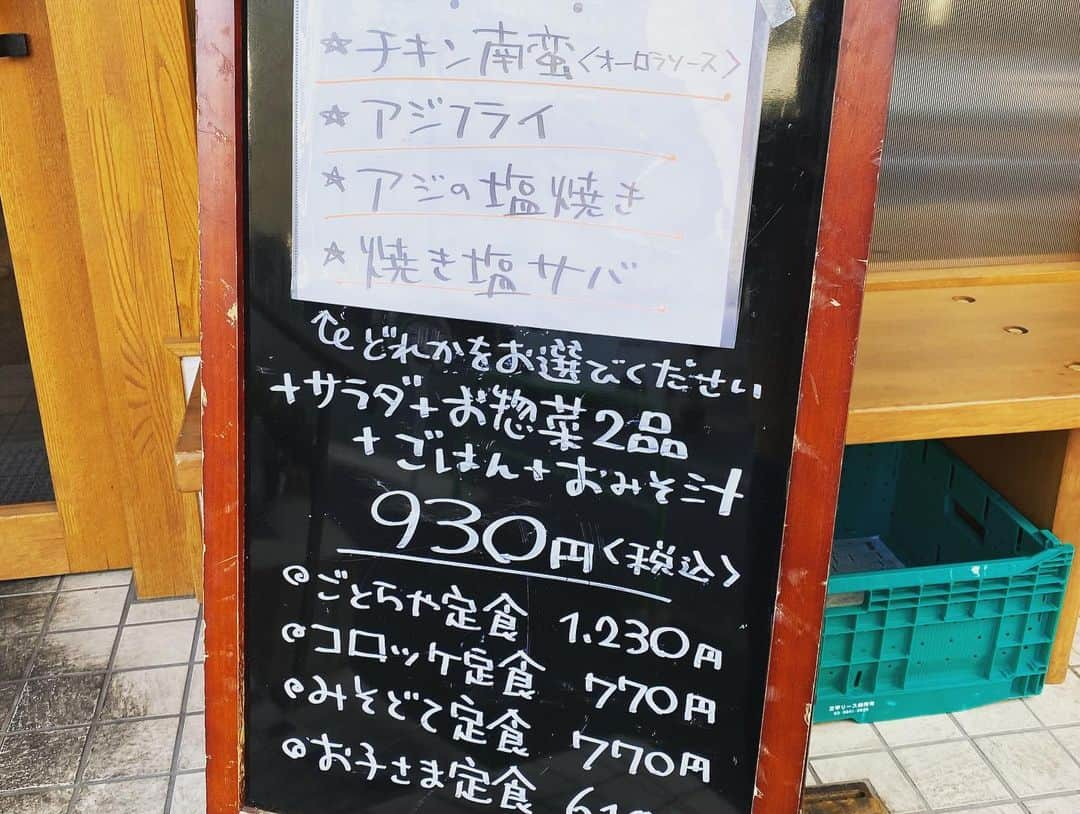 ☆チキン南蛮〈オーロラソース〉
☆アジフライ
☆アジの塩焼き
☆焼き塩サバ
↑どれかをお選びください
+サラダ+お惣菜2品
+ごはん+おみそ汁
930円〈税込〉
ごとらや定食 1.230円
コロッケ定食 770円
みそどて定食 770円
お子さま定食